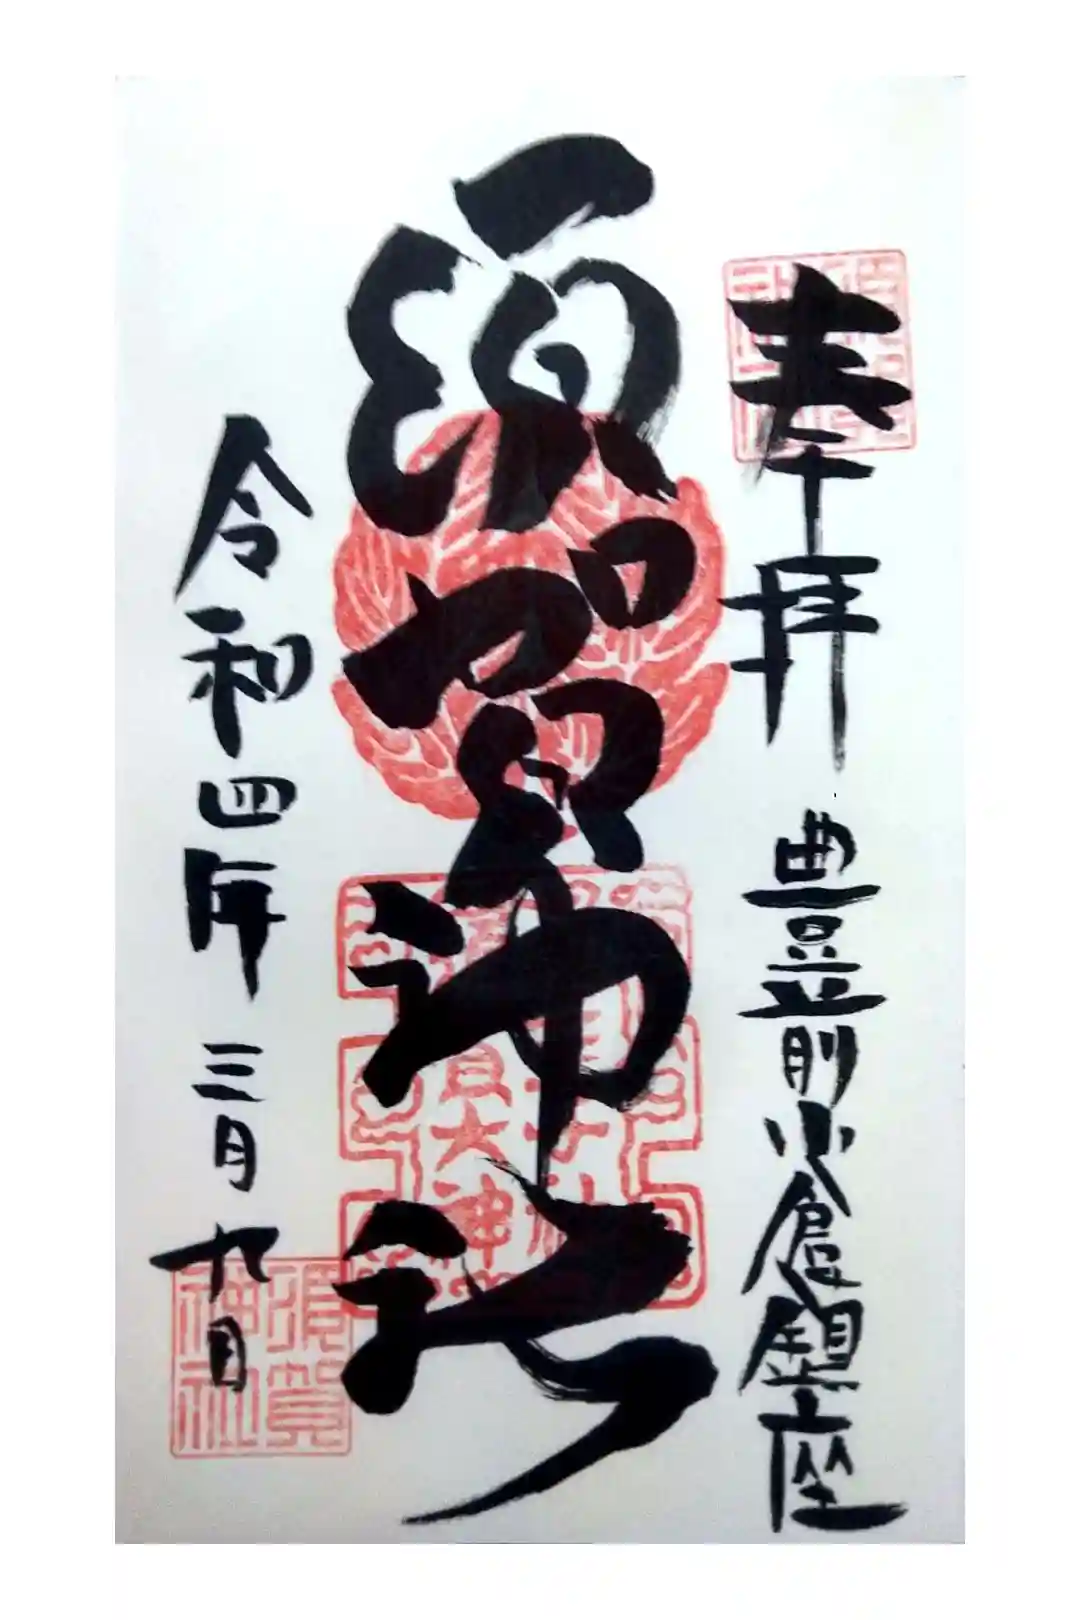 奉拝
豊前小倉鎮座
須賀神社
令和四年 三月九日
須賀
神社